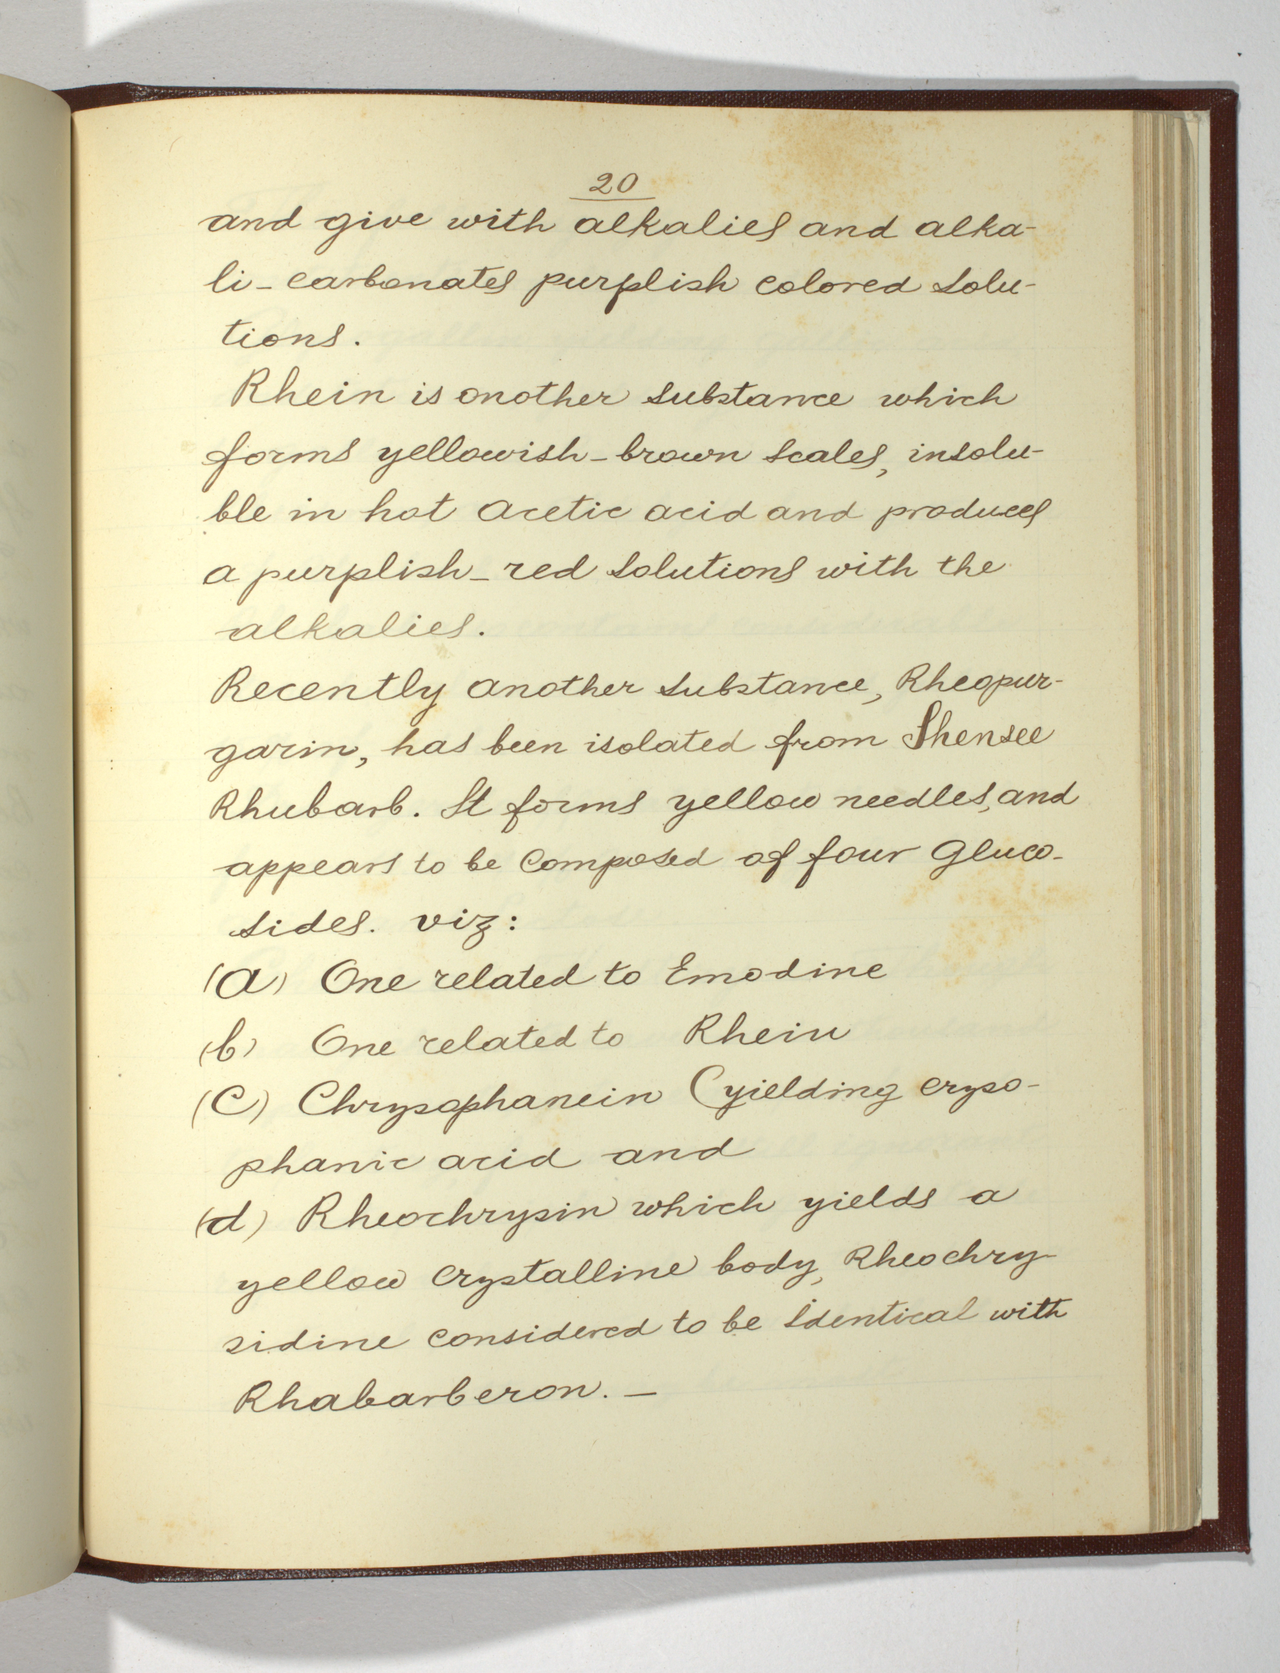 20
and give with alkalies and alka-
li-carbonates purplish colored solu-
tions.
Rhein is another substance which
forms yellowish-brown scales, insolu-
ble in hot acetic acid and produces
a purplish-red solutions with the
alkalies.
Recently another substance, Rheopur-
garin, has been isolated from Shensee
Rhubarb. It forms yellow needles, and
appears to be composed of four gluco-
sides. viz:
(a) One related to Emodine
(b) One related to Rhein
(c) Chrysophanein (yielding cryso-
phanic acid and
(d) Rheochrysin which yields a
yellow crystalline body, Rheochry-
sidine considered to be identical with
Rhabarberon. —